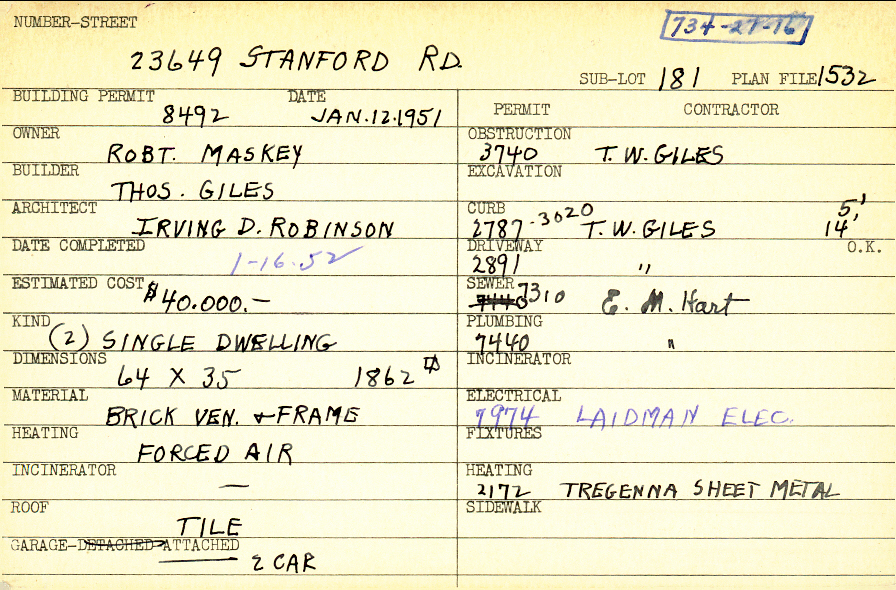 NUMBER-STREET
734-27-16
23649 STANFORD RD.
SUB-LOT 181 PLAN FILE 1532
BUILDING PERMIT DATE
8492 JAN.12.1951
OWNER
ROBT. MASKEY
BUILDER
THOS. GILES
ARCHITECT
IRVING D. ROBINSON
DATE COMPLETED
1-16-52
ESTIMATED COST
$40.000.—
KIND
(2) SINGLE DWELLING
DIMENSIONS
64 X 35 1862
MATERIAL
BRICK VEN. & FRAME
HEATING
FORCED AIR
INCINERATOR
—
ROOF
TILE
GARAGE-DETACHED-ATTACHED
2 CAR
PERMIT CONTRACTOR
OBSTRUCTION
3740 T.W. GILES
EXCAVATION
CURB
2787-3020 T.W. GILES 5' 14'
DRIVEWAY O.K.
2891 "
SEWER
7440 7310 E. M. Hart
PLUMBING
7440 "
INCINERATOR
ELECTRICAL
7974 LAIDMAN ELEC.
FIXTURES
HEATING
2172 TREGENNA SHEET METAL
SIDEWALK